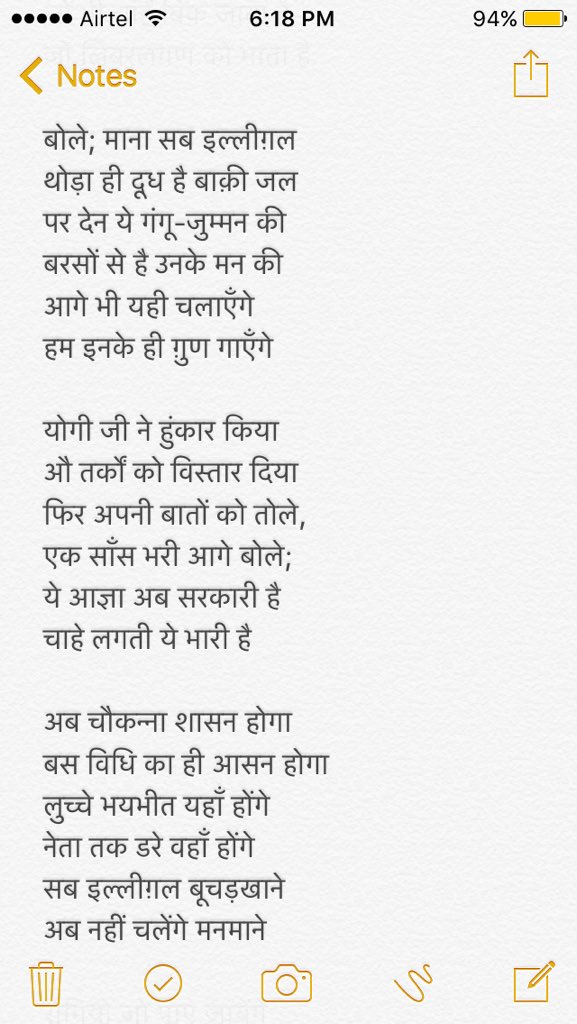 Airtel 6:18 PM 94%
Notes
बोले; माना सब इल्लीग़ल
थोड़ा ही दूध है बाक़ी जल
पर देन ये गंगू-जुम्मन की
बरसों से है उनके मन की
आगे भी यही चलाएँगे
हम इनके ही ग़ुण गाएँगे
योगी जी ने हुंकार किया
औ तर्कों को विस्तार दिया
फिर अपनी बातों को तोले,
एक साँस भरी आगे बोले;
ये आज्ञा अब सरकारी है
चाहे लगती ये भारी है
अब चौकन्ना शासन होगा
बस विधि का ही आसन होगा
लुच्चे भयभीत यहाँ होंगे
नेता तक डरे वहाँ होंगे
सब इल्लीग़ल बूचड़खाने
अब नहीं चलेंगे मनमाने